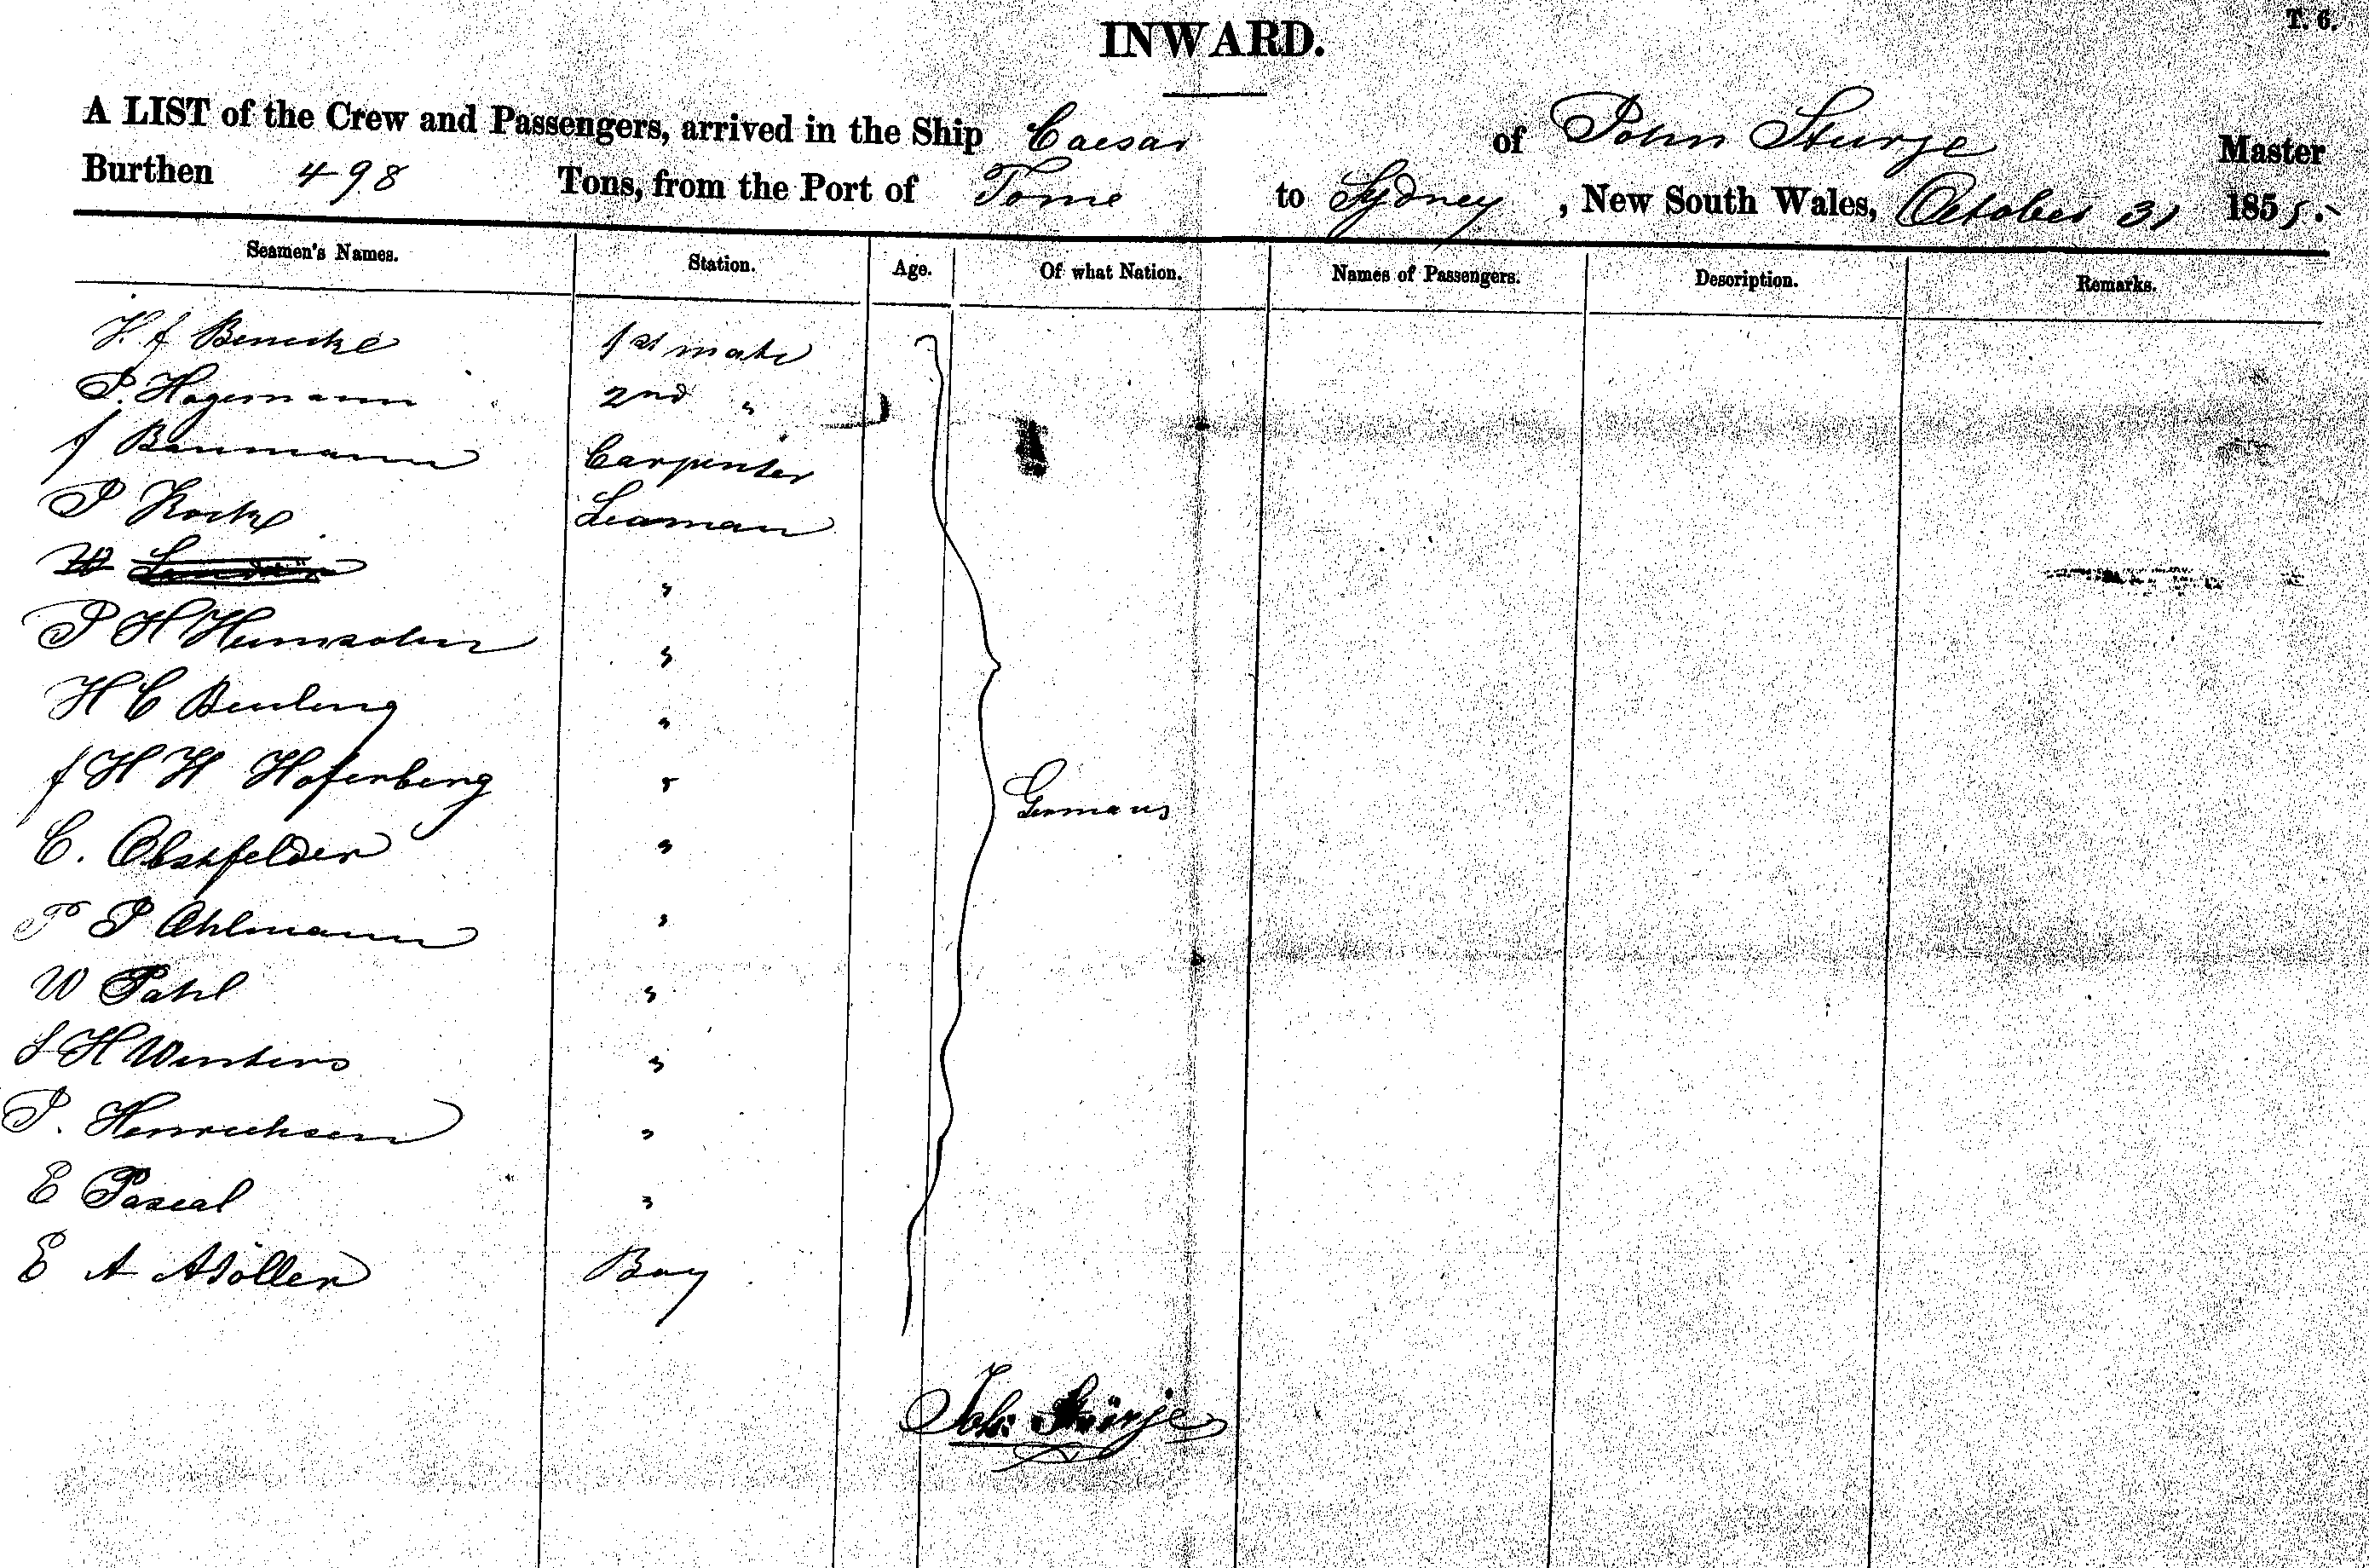 T. 6.
INWARD.
A LIST of the Crew and Passengers, arrived in the Ship Caesar of John Sturje Master
Burthen 498 Tons, from the Port of Tome to Sydney, New South Wales, October 31 1855.
Seamen's Names. Station. Age. Of what Nation. Names of Passengers. Description. Remarks.
H. J Benecke 1st mate
P. Hagemann 2nd "
J Baumann Carpenter
P Kock Seaman
W "
P H Heinsohn "
H C Beuling "
J H H Hofenberg "
Germans
C. Obstfelder "
P P Ohlmann "
W Pahl "
J H Winters "
P. Henrichsen "
E Pascal "
E A Möller Boy
Joh: Stürje